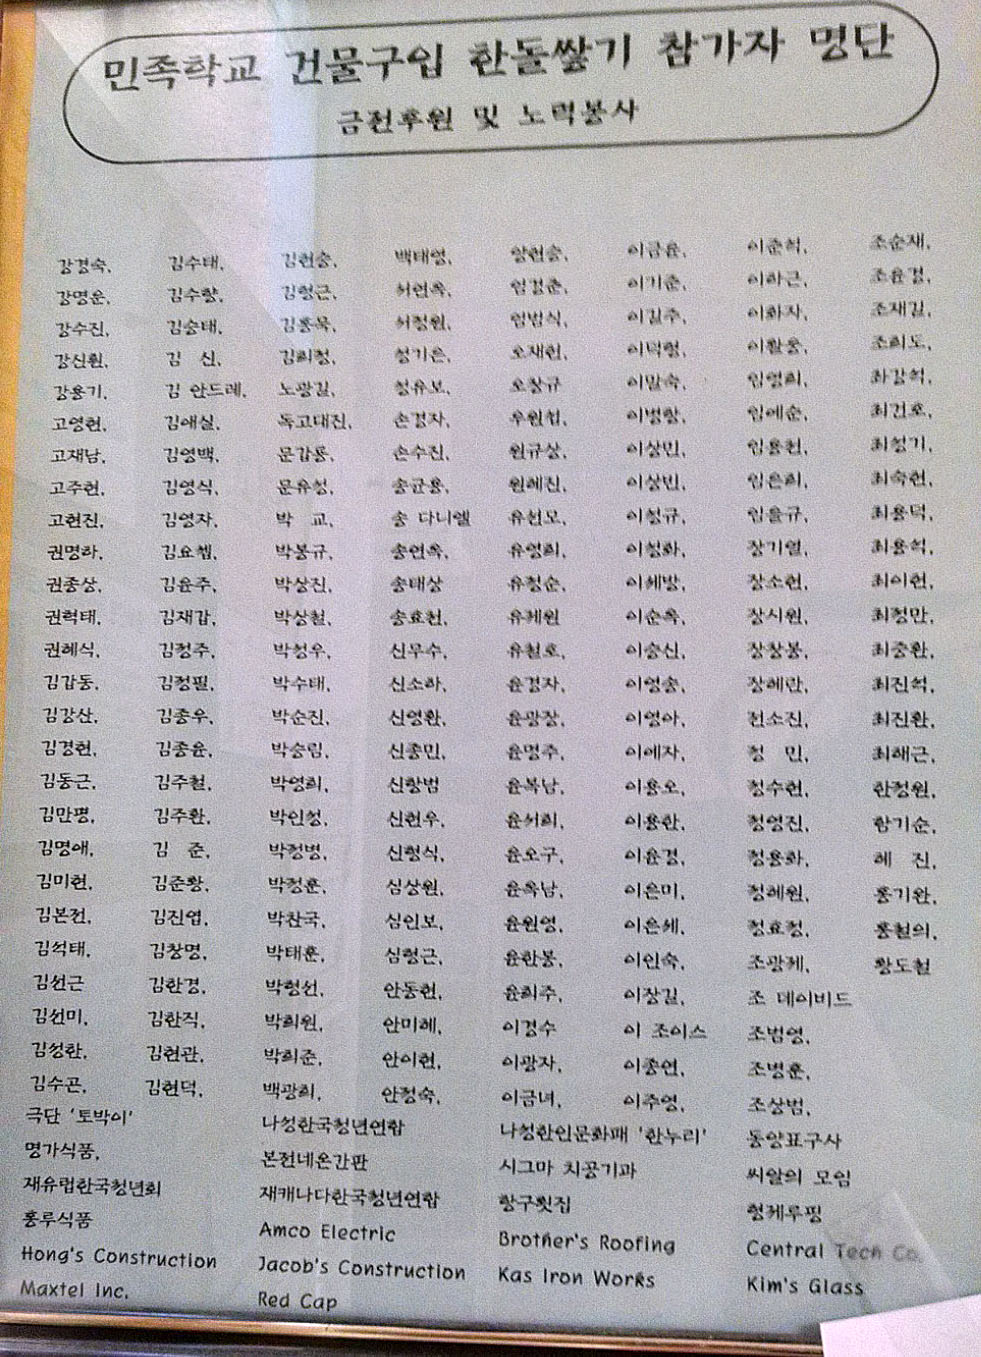 민족학교 건물구입 한돌쌓기 참가자 명단
금전후원 및 노력봉사
강경숙, 김수태, 김현숭, 백태영, 양현승, 이금윤, 이준석, 조순재,
강명운, 김수향, 김형근, 서연옥, 엄경춘, 이기춘, 이하근, 조윤경,
강수진, 김승태, 김홍묵, 서정원, 엄범식, 이길주, 이화자, 조재길,
강신원, 김 신, 김희정, 성기은, 오재헌, 이덕형, 이활웅, 조희도,
강용기, 김 안드레, 노광길, 성유보, 오창규 이말숙, 임영희, 최강혁,
고영현, 김애실, 독고대진, 손경자, 우원섭, 이병항, 임예순, 최건호,
고재남, 김영백, 문갑룡, 손수진, 원규상, 이상민, 임용천, 최성기,
고주현, 김영식, 문유성, 송균용, 원혜진, 이상빈, 임은희, 최숙현,
고현진, 김영자, 박 교, 송 다니엘 유선모, 이성규, 임을규, 최용덕,
권명하, 김요셉, 박봉규, 송연옥, 유영희, 이성화, 장기열, 최용석,
권종상, 김윤주, 박상진, 송태상 유정순, 이세방, 장소현, 최이현,
권혁태, 김재갑, 박상철, 송효천, 유제원 이순옥, 장시원, 최정만,
권혜식, 김정주, 박성우, 신무수, 유철호, 이승신, 장창봉, 최중환,
김갑동, 김정필, 박수태, 신소하, 윤경자, 이영송, 장혜란, 최진석,
김강산, 김종우, 박순진, 신영환, 윤광장, 이영아, 전소진, 최진환,
김경현, 김종윤, 박승림, 신종민, 윤명주, 이예자, 정 민, 최해근,
김동근, 김주철, 박영희, 신항범 윤복남, 이용오, 정수현, 한정원,
김만평, 김주환, 박인정, 신현우, 윤서희, 이용한, 정영진, 함기순,
김명애, 김 준, 박정병, 신형식, 윤오구, 이윤경, 정용화, 혜 진,
김미현, 김준황, 박정훈, 심상원, 윤옥남, 이은미, 정혜원, 홍기완,
김본전, 김진엽, 박찬국, 심인보, 윤원영, 이은세, 정효정, 홍철의,
김석태, 김창명, 박태훈, 심형근, 윤한봉, 이인숙, 조광제, 황도철
김선근 김한경, 박형선, 안동현, 윤희주, 이장길, 조 데이비드
김선미, 김한직, 박희원, 안미혜, 이경수 이 조이스 조범영,
김성한, 김현관, 박희준, 안이현, 이광자, 이종연, 조병훈,
김수곤, 김현덕, 백광희, 안정숙, 이금녀, 이주영, 조상범,
극단 '토박이' 나성한국청년연합 나성한인문화패 '한누리' 동양표구사
명가식품, 본전네온간판 시그마 치공기과 씨알의 모임
재유럽한국청년회 재캐나다한국청년연합 항구횟집 형제루핑
홍루식품 Amco Electric Brother's Roofing Central Tech Co.
Hong's Construction Jacob's Construction Kas Iron Works Kim's Glass
Maxtel Inc. Red Cap